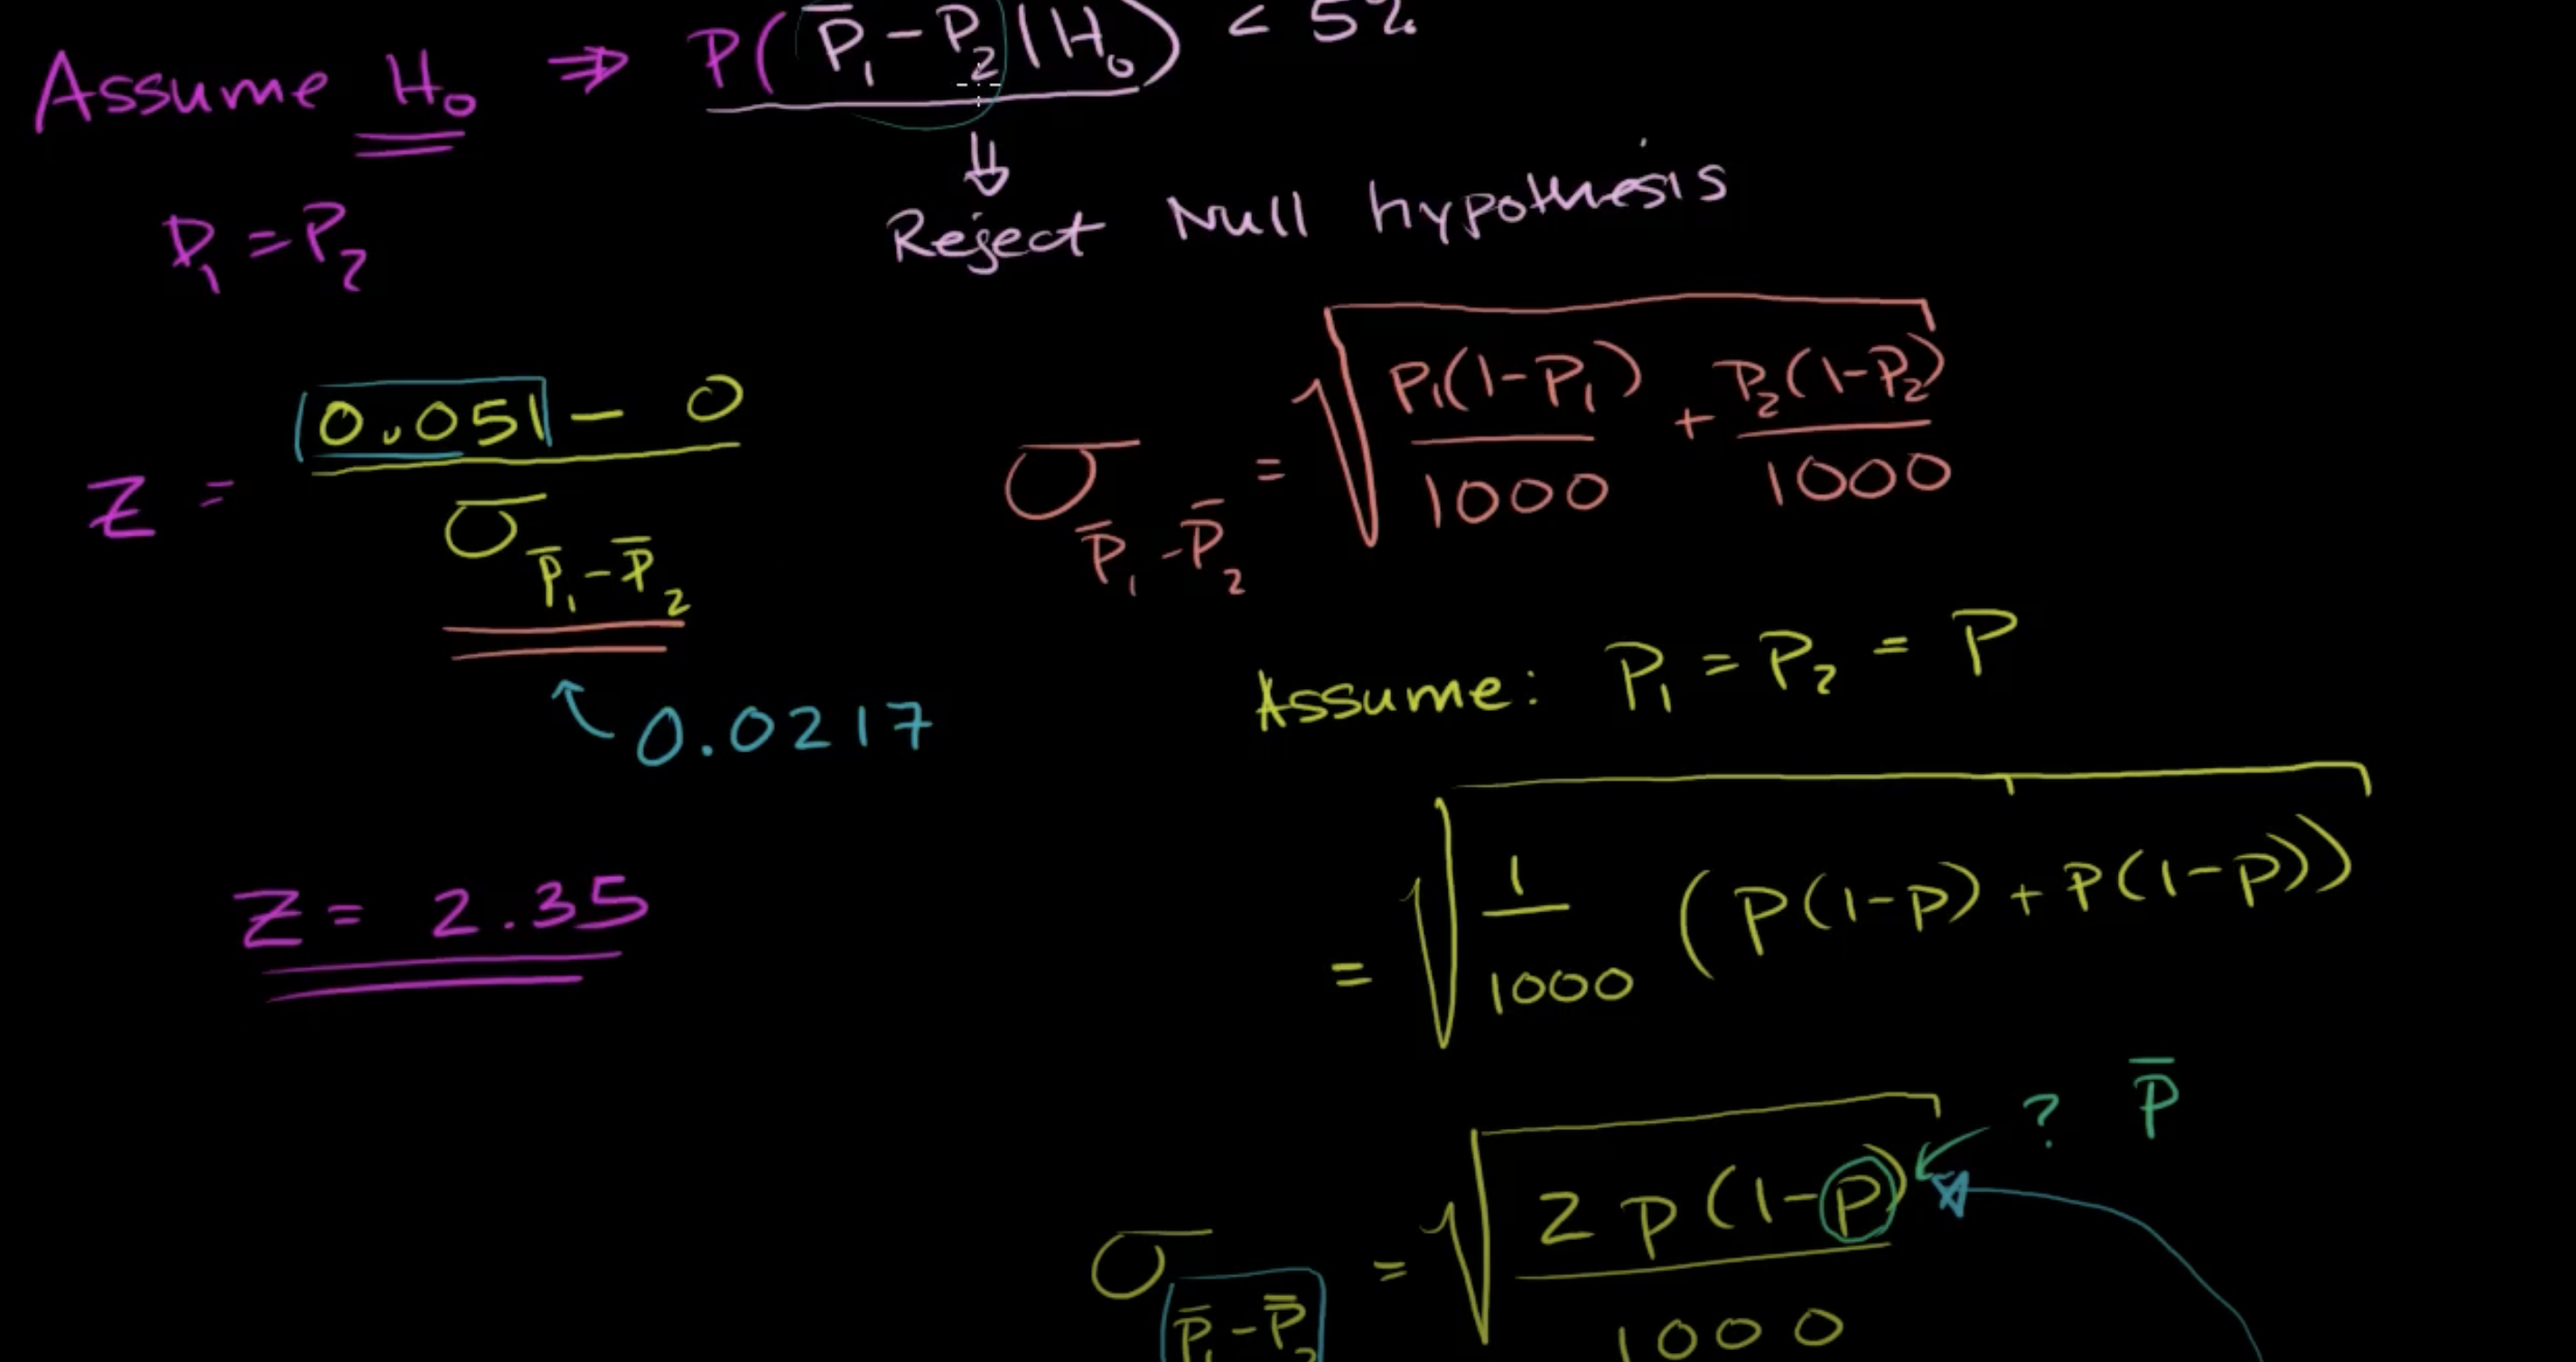 Assume H₀ ⇒ P(P̄₁ - P₂ | H₀) < 5%
P₁ = P₂
Reject Null hypothesis
Z = (0.051 - 0) / σ_(P̄₁ - P̄₂)
0.0217
σ_(P̄₁ - P̄₂) = √(P₁(1-P₁)/1000 + P₂(1-P₂)/1000)
Assume: P₁ = P₂ = P
= √(1/1000 (P(1-P) + P(1-P)))
Z = 2.35
? P̄
σ_(P̄₁ - P̄₂) = √(2P(1-P)/1000)